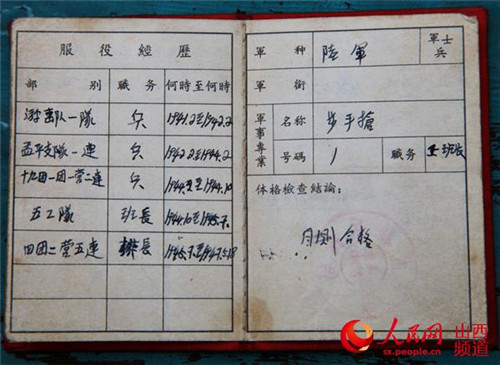 服役經歷
部別 職务 何時至何時
游击队一隊 兵 1941.2至1942.2
孟平支隊一連 兵 1942.2至1944.2
十九团一团一营二連 兵 1944.2至1944.10
五工隊 班長 1944.10至1945.7
四团二营五連 排長
軍种 陸軍 軍士兵
軍銜
軍事專業 名称 步手搶
号码 1 職务 班長
体格檢查結論:
目测合格
人民网 山西频道
sx.people.cn